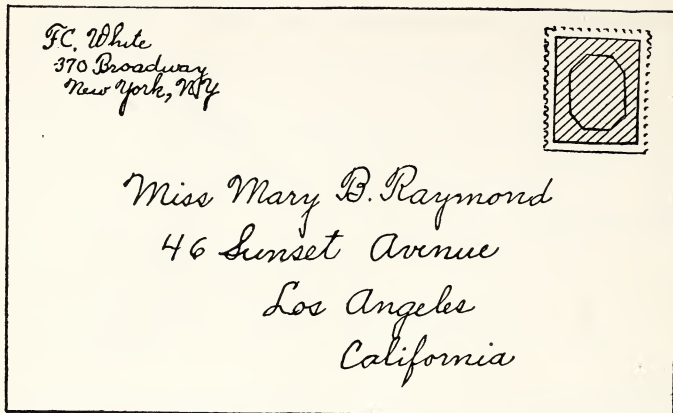 F.C. White
370 Broadway
New York, NY
Miss Mary B. Raymond
46 Sunset Avenue
Los Angeles
California